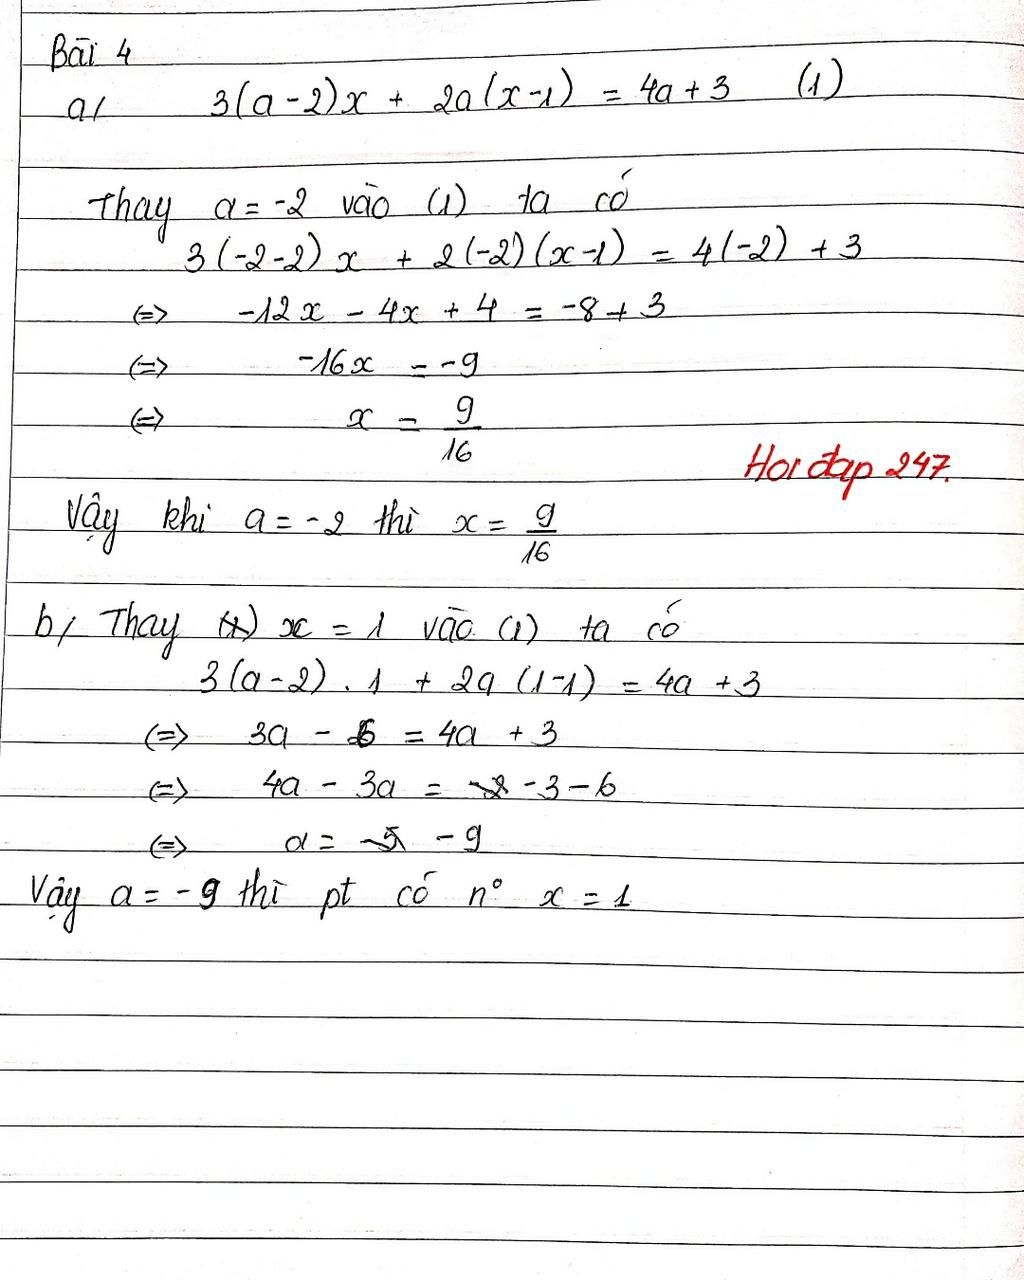 Bài 4
a/ 3(a-2)x + 2a(x-1) = 4a+3 (1)
Thay a = -2 vào (1) ta có
3(-2-2)x + 2(-2)(x-1) = 4(-2) + 3
(=) -12x - 4x + 4 = -8+3
(=) -16x = -9
(=) x = 9/16
Hoi đap 247.
Vậy khi a = -2 thì x = 9/16
b/ Thay x = 1 vào (1) ta có
3(a-2).1 + 2a(1-1) = 4a+3
(=) 3a - 6 = 4a + 3
(=) 4a - 3a = -3-6
(=) a = -9
Vậy a = -9 thì pt có n° x = 1